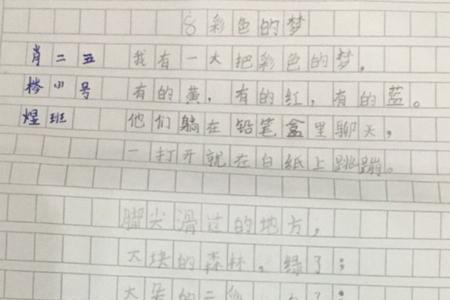 8 彩色的梦
肖二五 我有一大把彩色的梦。
小号 有的黄,有的红,有的蓝。
班 他们躺在铅笔盒里聊天,
一打开就在白纸上跳蹦。
脚尖滑过的地方,
大块的森林,绿了;
大朵的